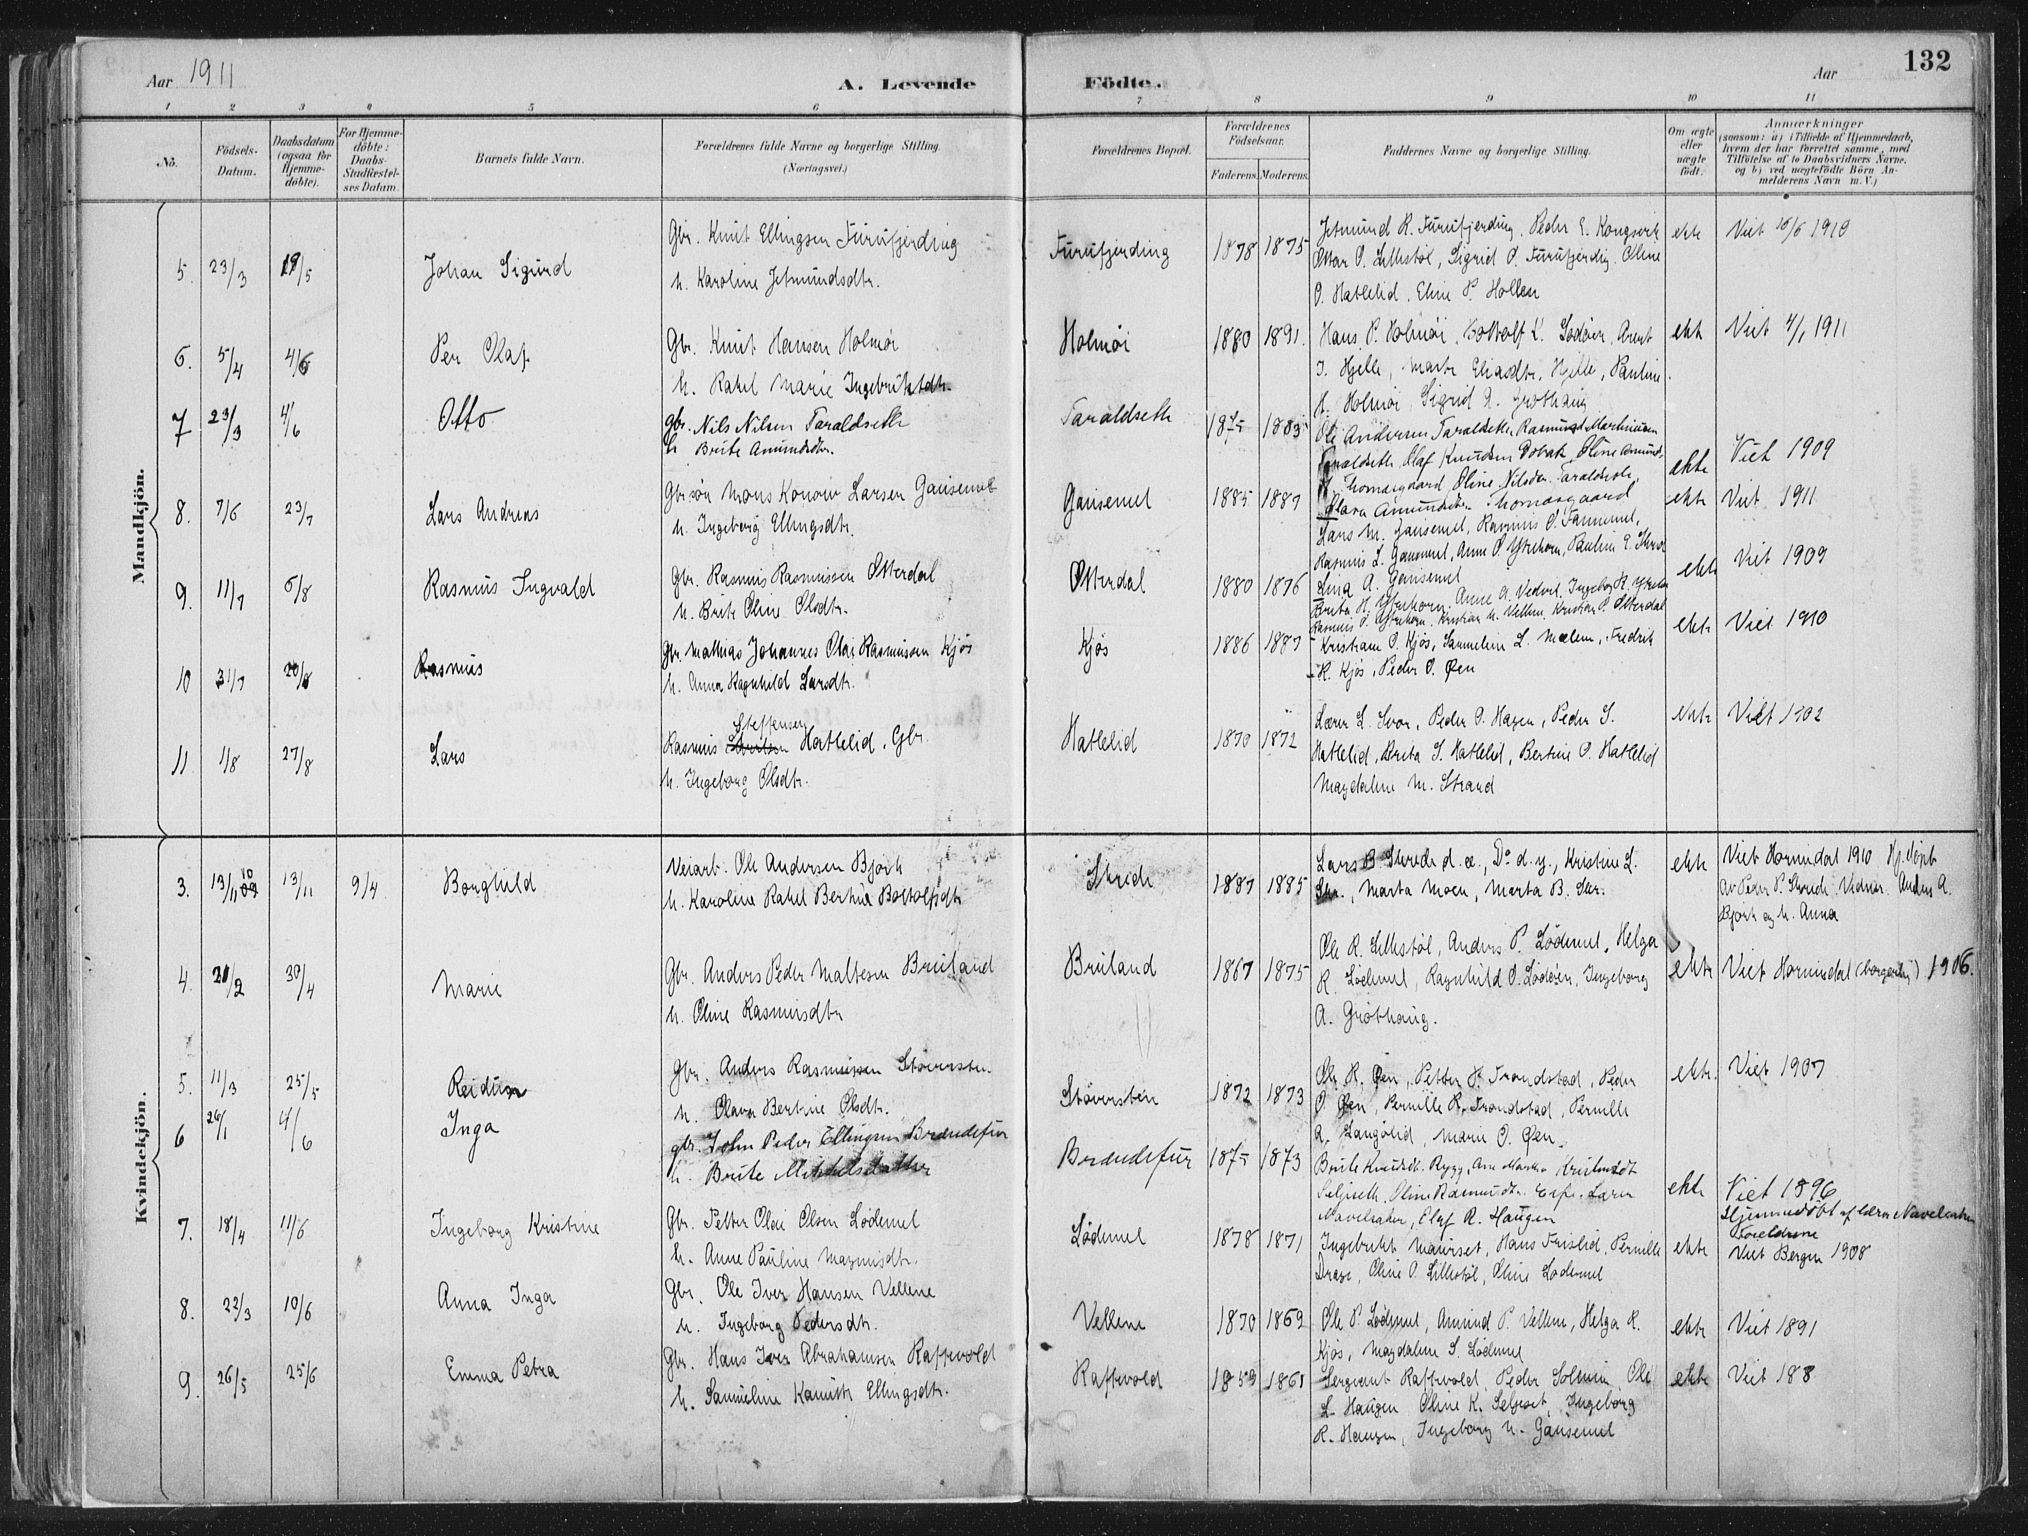 Aar 1911
A. Levende
Födte.
Aar
132
1 2 3 4 5 6 7 8 9 10 11
No.
Födsels-Datum.
Daabsdatum (ogsaa for Hjemme-döbte).
For Hjemme-döbte: Daabs-Stadfæstel-ses Datum.
Barnets fulde Navn.
Forældrenes fulde Navne og borgerlige Stilling. (Næringsvei.)
Forældrenes Bopæl.
Forældrenes Födselsaar.
Faderens. Moderens.
Faddernes Navne og borgerlige Stilling.
Om ægte eller uægte födt.
Anmærkninger
(saasom: a) i Tilfælde af Hjemmedaab, hvem der har forrettet samme, med Tilföielse af to Daabsvidners Navne, og b) ved uægtefödte Börn An-melderens Navn m.V.)
Mandkjön.
5. 23/3 19/5 Johan Sigurd
Gbr. Knut Ellingsen Furufjerding
h. Karoline Jetmundsdtr.
Furufjerding 1878 1875
Jetmund R. Furufjerding, Peder E. Kongsvik
Ottar O. Lillestøl, Sigrid O. Furufjerding, Oline
O. Hatlelid, Eline P. Hollen
ekte Viet 1910
6. 5/4 4/6 Per Olaf
Gbr. Knut Hansen Holmøi
h. Rakel Marie Ingebrigtsdtr.
Holmøi 1880 1891
Hans P. Holmøi, L. Lødøen, Arent
I. Hjelle, Marte Eliasdtr. Hjelle, Pauline
H. Holmøi, Sigrid A. Grøthaug
ekte Viet 4/1 1911
7 23/3 4/6 Otto
gbr. Nils Nilsen Taraldseth
h Brite Amundsdtr.
Taraldseth 1875 1883
Ole Andersen Taraldseth, Rasmus Martinusen
Taraldseth, Olaf Knudsen, Oline Amunds.
Thomasgaard, Oline Nilsdtr. Taraldseth,
Olava Amundsdtr. Thomasgaard
ekte Viet 1909
8. 7/6 23/7 Lars Andreas
Gbrsøn Mons Konow Larsen Gausemel
h. Ingeborg Ellingsdtr.
Gausemel 1885 1887
Lars M. Gausemel, Rasmus O. Tannemel,
Rasmus L. Gausemel, Anne O. Ytrehorn, Pauline E. Skree
Lina A. Gausemel
ekte Viet 1911
9. 11/7 6/8 Rasmus Ingvald
Gbr. Rasmus Rasmussen Otterdal
h. Brite Oline Olsdtr.
Otterdal 1880 1876
Brita H. Ytrehorn, Anne A. Vedvik, Ingeborg R. Ytrehorn
Rasmus O. Ytrehorn, Kristian M. Vellene, Kristian P. Otterdal
ekte Viet 1909
10 31/7 20/8 Rasmus
Gbr. Mathias Johannes Olai Rasmussen Kjøs
h. Anna Ragnhild Larsdtr.
Kjøs 1886 1887
Kristiane O. Kjøs, Sammeline L. Mælem, Fredrik
R. Kjøs, Peder O. Øen
ekte Viet 1910
11 1/8 27/8 Lars
Steffensen
Rasmus Hatlelid, Gbr.
h. Ingeborg Olsdtr.
Hatlelid 1870 1872
Lærer L. Svor, Peder O. Hagen, Peder S.
Hatlelid, Brita S. Hatlelid, Bertine O. Hatlelid
Magdalene M. Strand
ekte Viet 1902
Kvindekjön.
3. 13/11 10 13/11 9/4 Borghild
Veiarb. Ole Andersen Bjørk
h. Karoline Rakel Bertine Bottolfsdtr
Skrede 1887 1885
Lars B. Skrede d.æ., Do d.y., Kristine L.
Skr., Marta Moen, Marta B. Skr.
ekte Viet Hornindal 1910 Hj.døpt
av Peder P. Skrede. Vidner: Anders A.
Bjørk og h. Anna
4. 21/2 30/4 Marie
Gbr. Anders Peder Maltesen Breiland
h. Oline Rasmusdtr
Breiland 1867 1875
Ole R. Lillestøl, Anders P. Lødemel, Helga
R. Lødemel, Ragnhild O. Lødøen, Ingeborg
A. Grøthaug.
ekte Viet Hornindal (borgerlig) 1906.
5. 11/3 25/5 Reidun
Gbr. Anders Rasmussen Størersten
h. Olava Bertine Olsdtr.
Størersten 1872 1873
Ole R. Øen, Petter P. Trondstad, Peder
O. Øen, Pernille R. Trondstad, Pernille
A. Langølid, Marie O. Øen.
ekte. Viet 1907
6 26/1 4/6 Inga
gbr. John Peder Ellingsen Brendefur
h. Brite Mikkelsdatter
Brendefur 1875 1873
Brite Knudsdt. Rygg, Ane Marthe
Seljeseth, Oline Rasmusdtr., Lærer
Navelsaker, Elef R. Haugen
ekte Viet 1896
Hjemmedöbt af lærer Navelsaker
Forældrene
7. 18/4 11/6 Ingeborg Kristine
Gbr. Petter Olai Olsen Lødemel
h. Anne Pauline Magnusdtr.
Lødemel 1878 1871
Ingebrikt Maurset, Hans Frislid, Pernille
Drage, Oline P. Lillestøl, Oline Lødemel
ekte Viet Bergen 1908
8. 22/3 10/6 Anna Inga
Gbr. Ole Iver Hansen Vellene
h. Ingeborg Pedersdtr.
Vellene 1870 1869
Ole P. Lødemel, Amund P. Vellene, Helga R.
Kjøs, Magdalene S. Lødemel
ekte Viet 1891
9. 26/5 25/6 Emma Petra
Gbr. Hans Iver Abrahamsen Raftevold
h. Sammeline Kamitte Ellingsdtr.
Raftevold 1859 1861
Sergeant Raftevold, Peder Solheim, Ole
L. Haugen, Oline K. Seljeset, Ingeborg
R. Haugen, Ingeborg N. Gausemel
ekte Viet 188